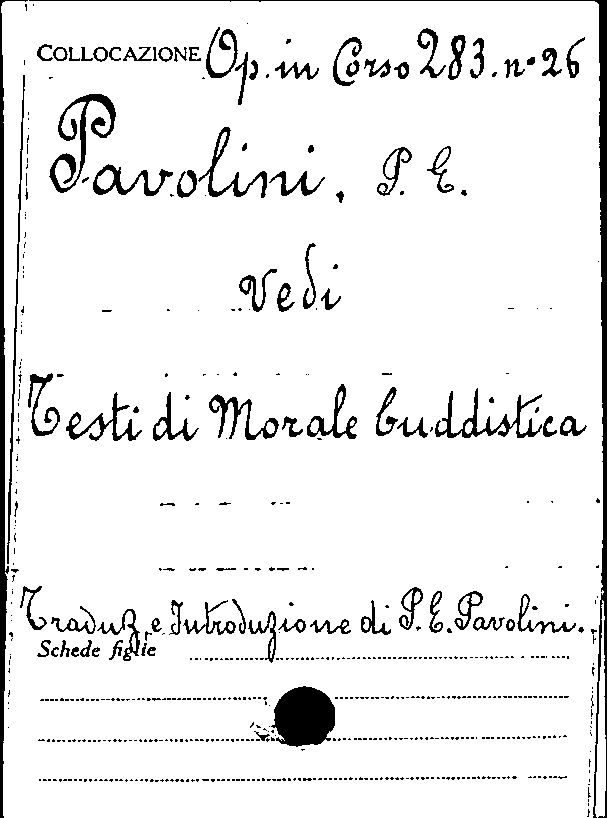 COLLOCAZIONE Op. in Corso 283. n° 26
Pavolini, P. E.
Vedi
Testi di Morale buddistica
Traduz. e Introduzione di P. E. Pavolini.
Schede figlie